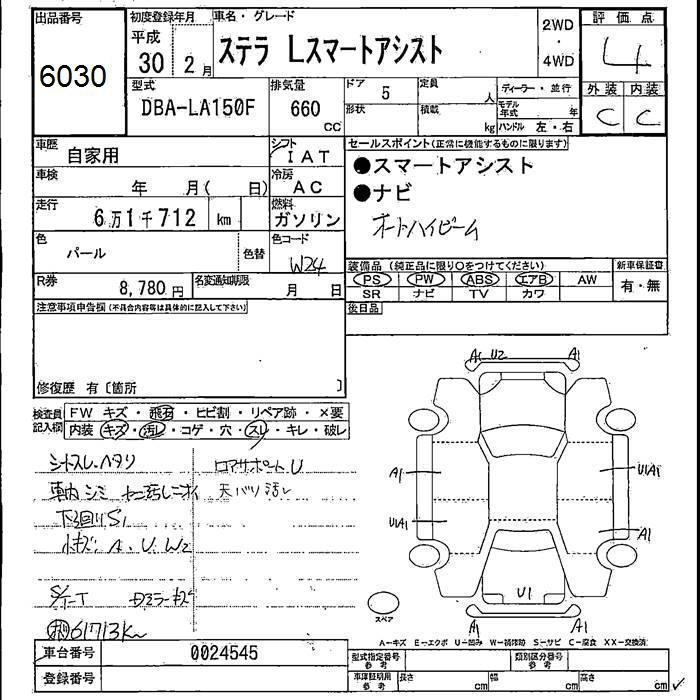 出品番号
6030
初度登録年月
平成
30 2月
車名・グレード
ステラ Lスマートアシスト
2WD
・
4WD
評価点
4
外装 内装
C C
型式
DBA-LA150F
排気量
660
cc
ドア 5
形状
定員 人
積載 kg
ディーラー・並行
モデル年式 年
ハンドル 左・右
車歴
自家用
シフト
IAT
車検
年 月( 日)
冷房
AC
走行
6万1千712 km
燃料
ガソリン
色
パール
色替
色コード
W24
R券
8,780円
名変通知期限
月 日
セールスポイント(正常に機能するものに限ります)
●スマートアシスト
●ナビ
オートハイビーム
装備品 (純正品に限り○をつけてください)
PS PW ABS エアB AW
SR ナビ TV カワ
新車保証書
有・無
後日品
注意事項申告欄(不具合内容等は具体的に記入して下さい)
修復歴 有〔箇所 〕
検査員記入欄
FW キズ・飛石・ヒビ割・リペア跡・×要
内装 キズ・汚れ・コゲ・穴・スレ・キレ・破レ
シートスレ、ヘタリ
車内シミ
下廻りS1
小キズ A、U、W2
ロアサポートU
天バリ汚レ
ミラーキズ
61713K
A1 U2 A1
A1
U1A1
U1A1
A1
U1
A1 A1
スペア
A-キズ E-エクボ U-凹み W-補修跡 S-サビ C-腐食 XX-交換済
車台番号
0024545
登録番号
型式指定番号
参考
類別区分番号
参考
車庫証明用
参考
長さ cm
幅 cm
高さ cm